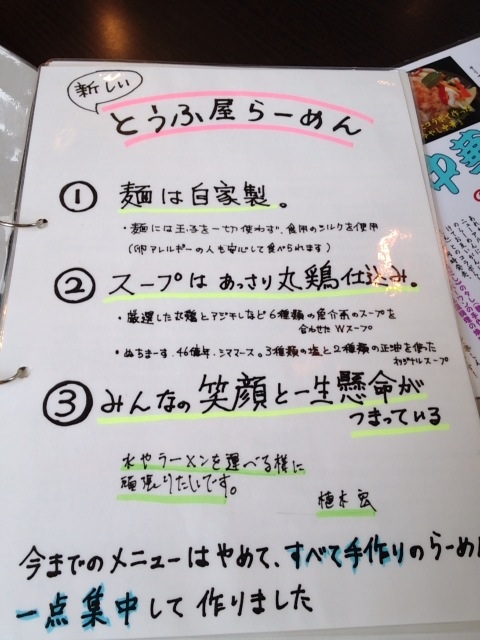 新しい
とうふ屋らーめん
① 麺は自家製。
・麺には玉子を一切使わず、食用のシルクを使用
(卵アレルギーの人も安心して食べられます)
② スープはあっさり丸鶏仕込み。
・厳選した丸鶏とアジキしなど6種類の魚介系のスープを
合わせたWスープ
・ぬちまーす、46億年、シママース。3種類の塩と2種類の正油を使った
オリジナルスープ
③ みんなの笑顔と一生懸命が
つまっている
水やラーメンを運べる様に
頑張りたいです。
植木宏
今までのメニューはやめて、すべて手作りのらーめ
一点集中して作りました